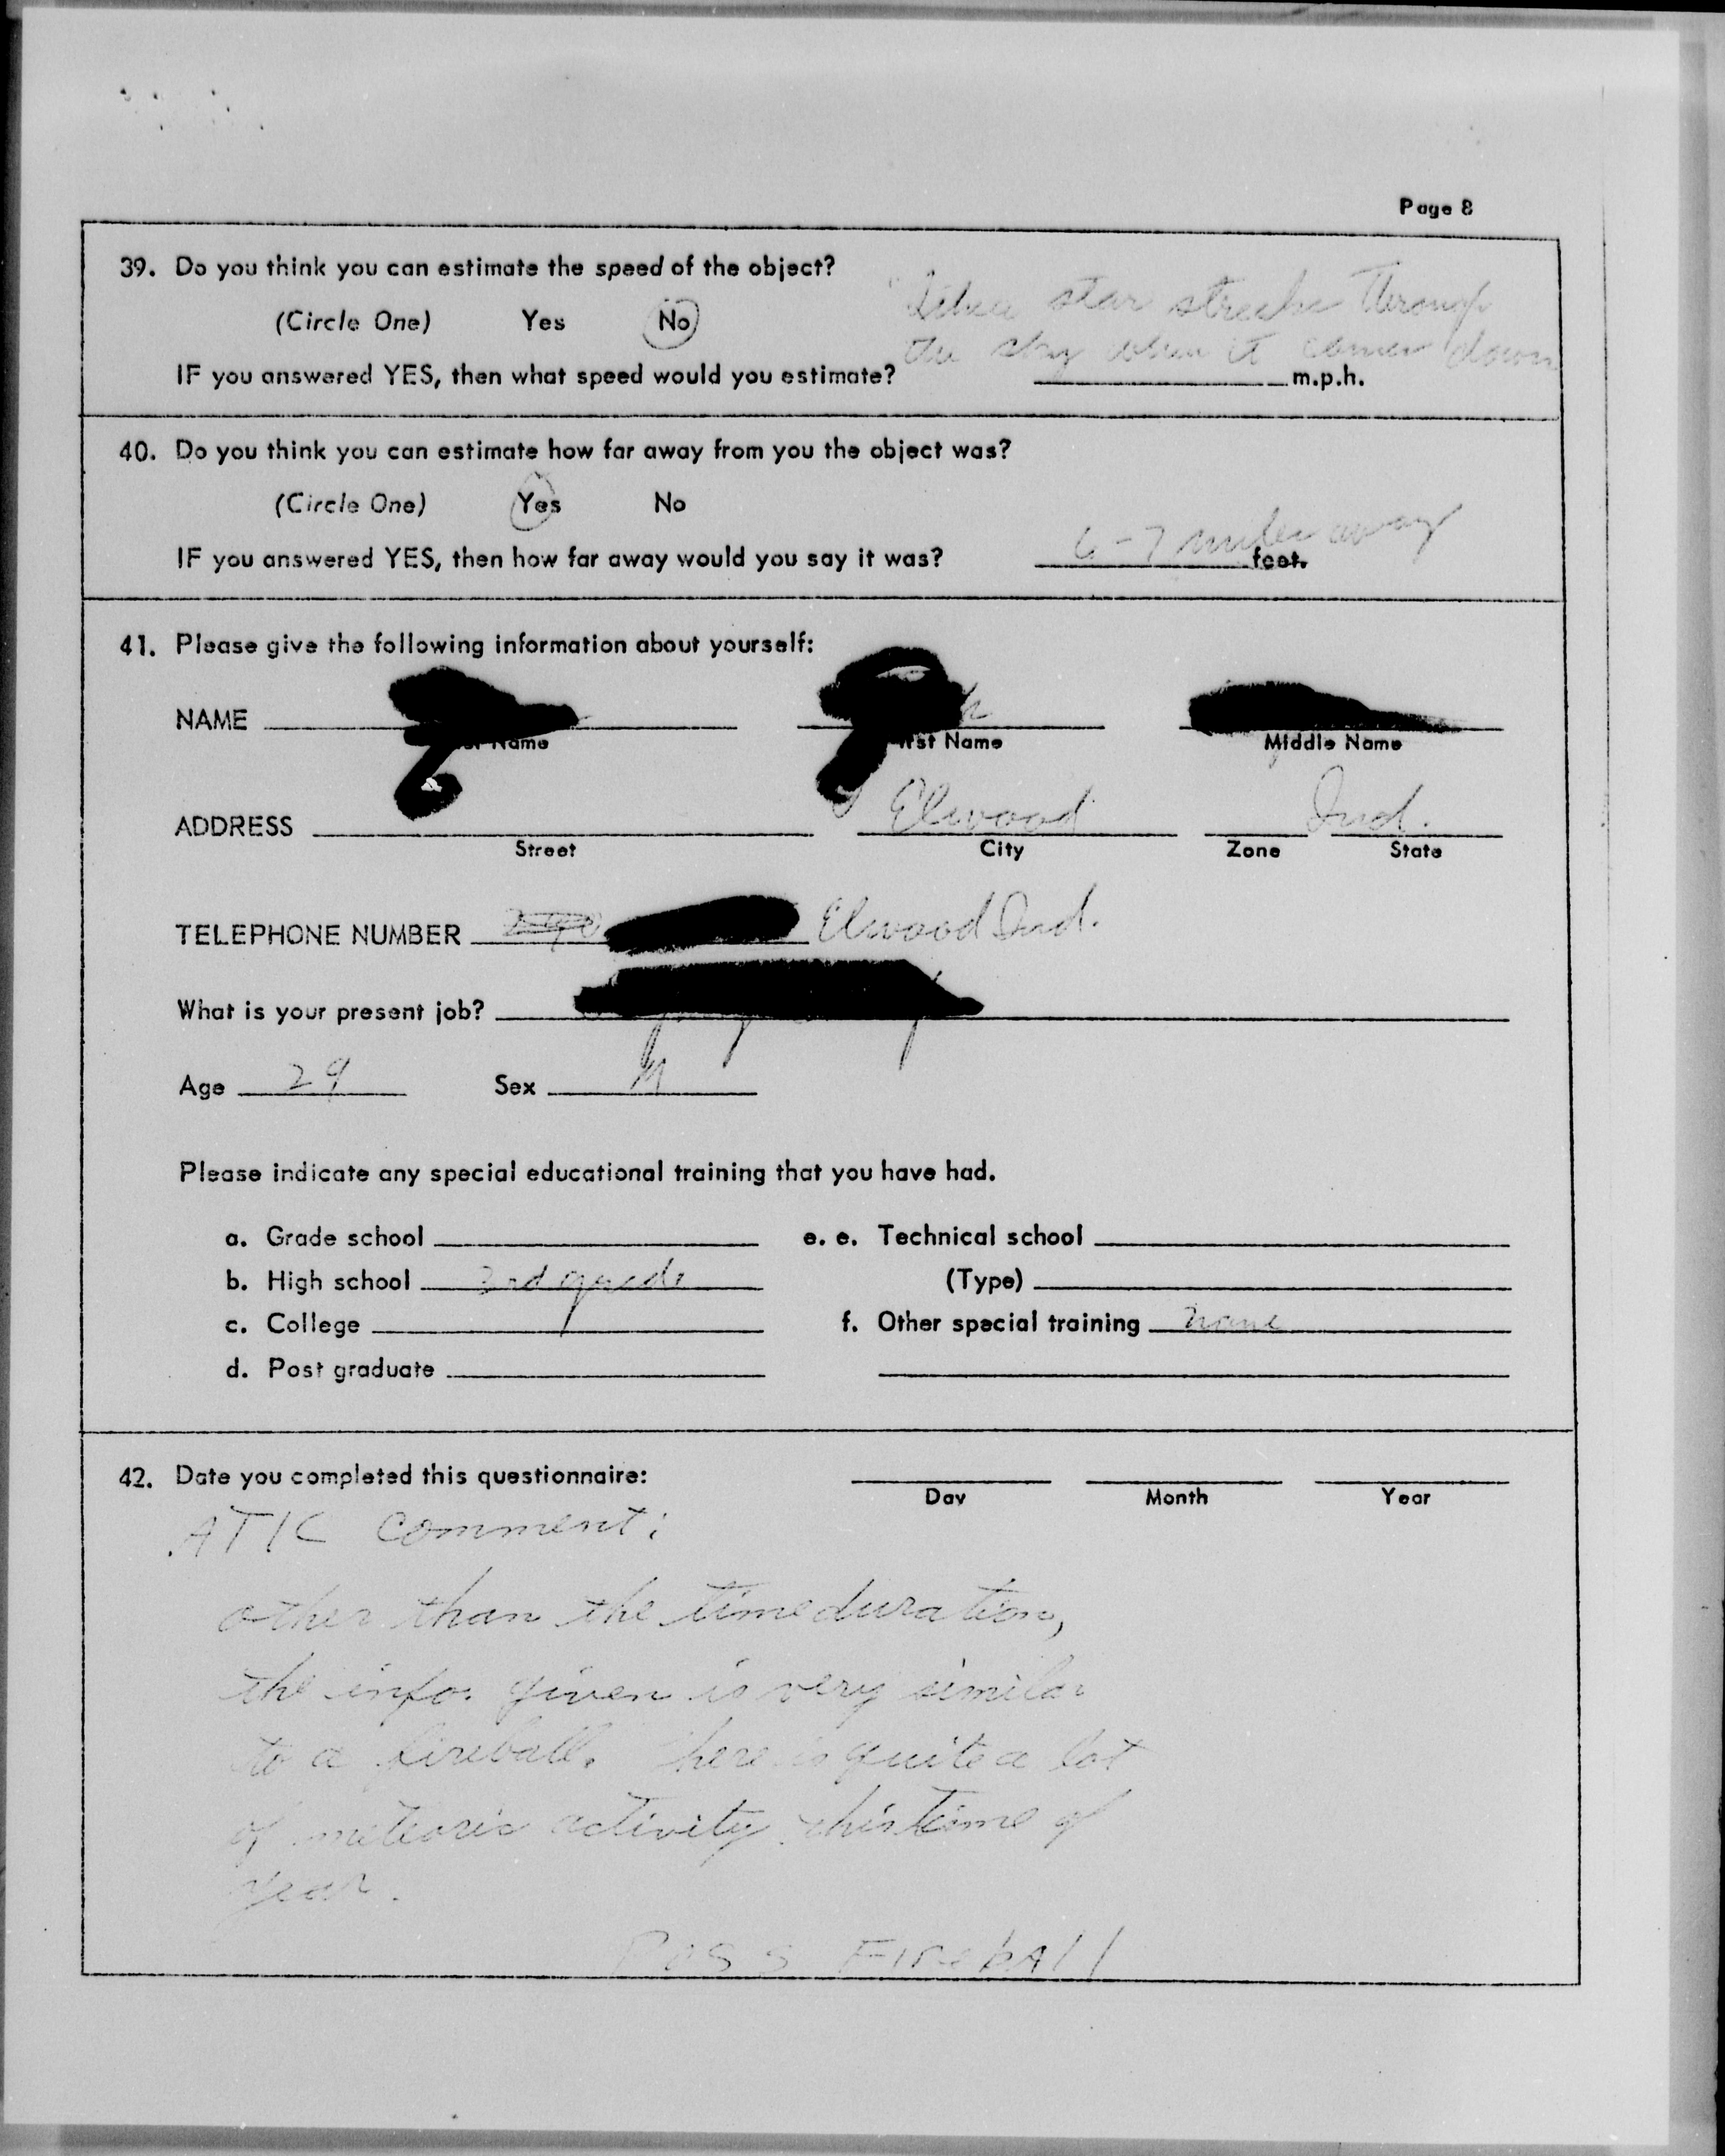 Page 8
39. Do you think you can estimate the speed of the object?
(Circle One) Yes No
star streaks through
the sky when it comes down
IF you answered YES, then what speed would you estimate? m.p.h.
40. Do you think you can estimate how far away from you the object was?
(Circle One) Yes No
IF you answered YES, then how far away would you say it was? 6-7 miles away feet.
41. Please give the following information about yourself:
NAME
Name Name Middle Name
ADDRESS Elwood Ind.
Street City Zone State
TELEPHONE NUMBER Elwood Ind.
What is your present job?
Age 29 Sex M
Please indicate any special educational training that you have had.
a. Grade school e. e. Technical school
b. High school grade (Type)
c. College f. Other special training none
d. Post graduate
42. Date you completed this questionnaire:
Day Month Year
ATIC comment:
other than the time duration,
the info. given is very similar
to a fireball. There is quite a lot
of meteoric activity this time of
year.
POSS FIREBALL